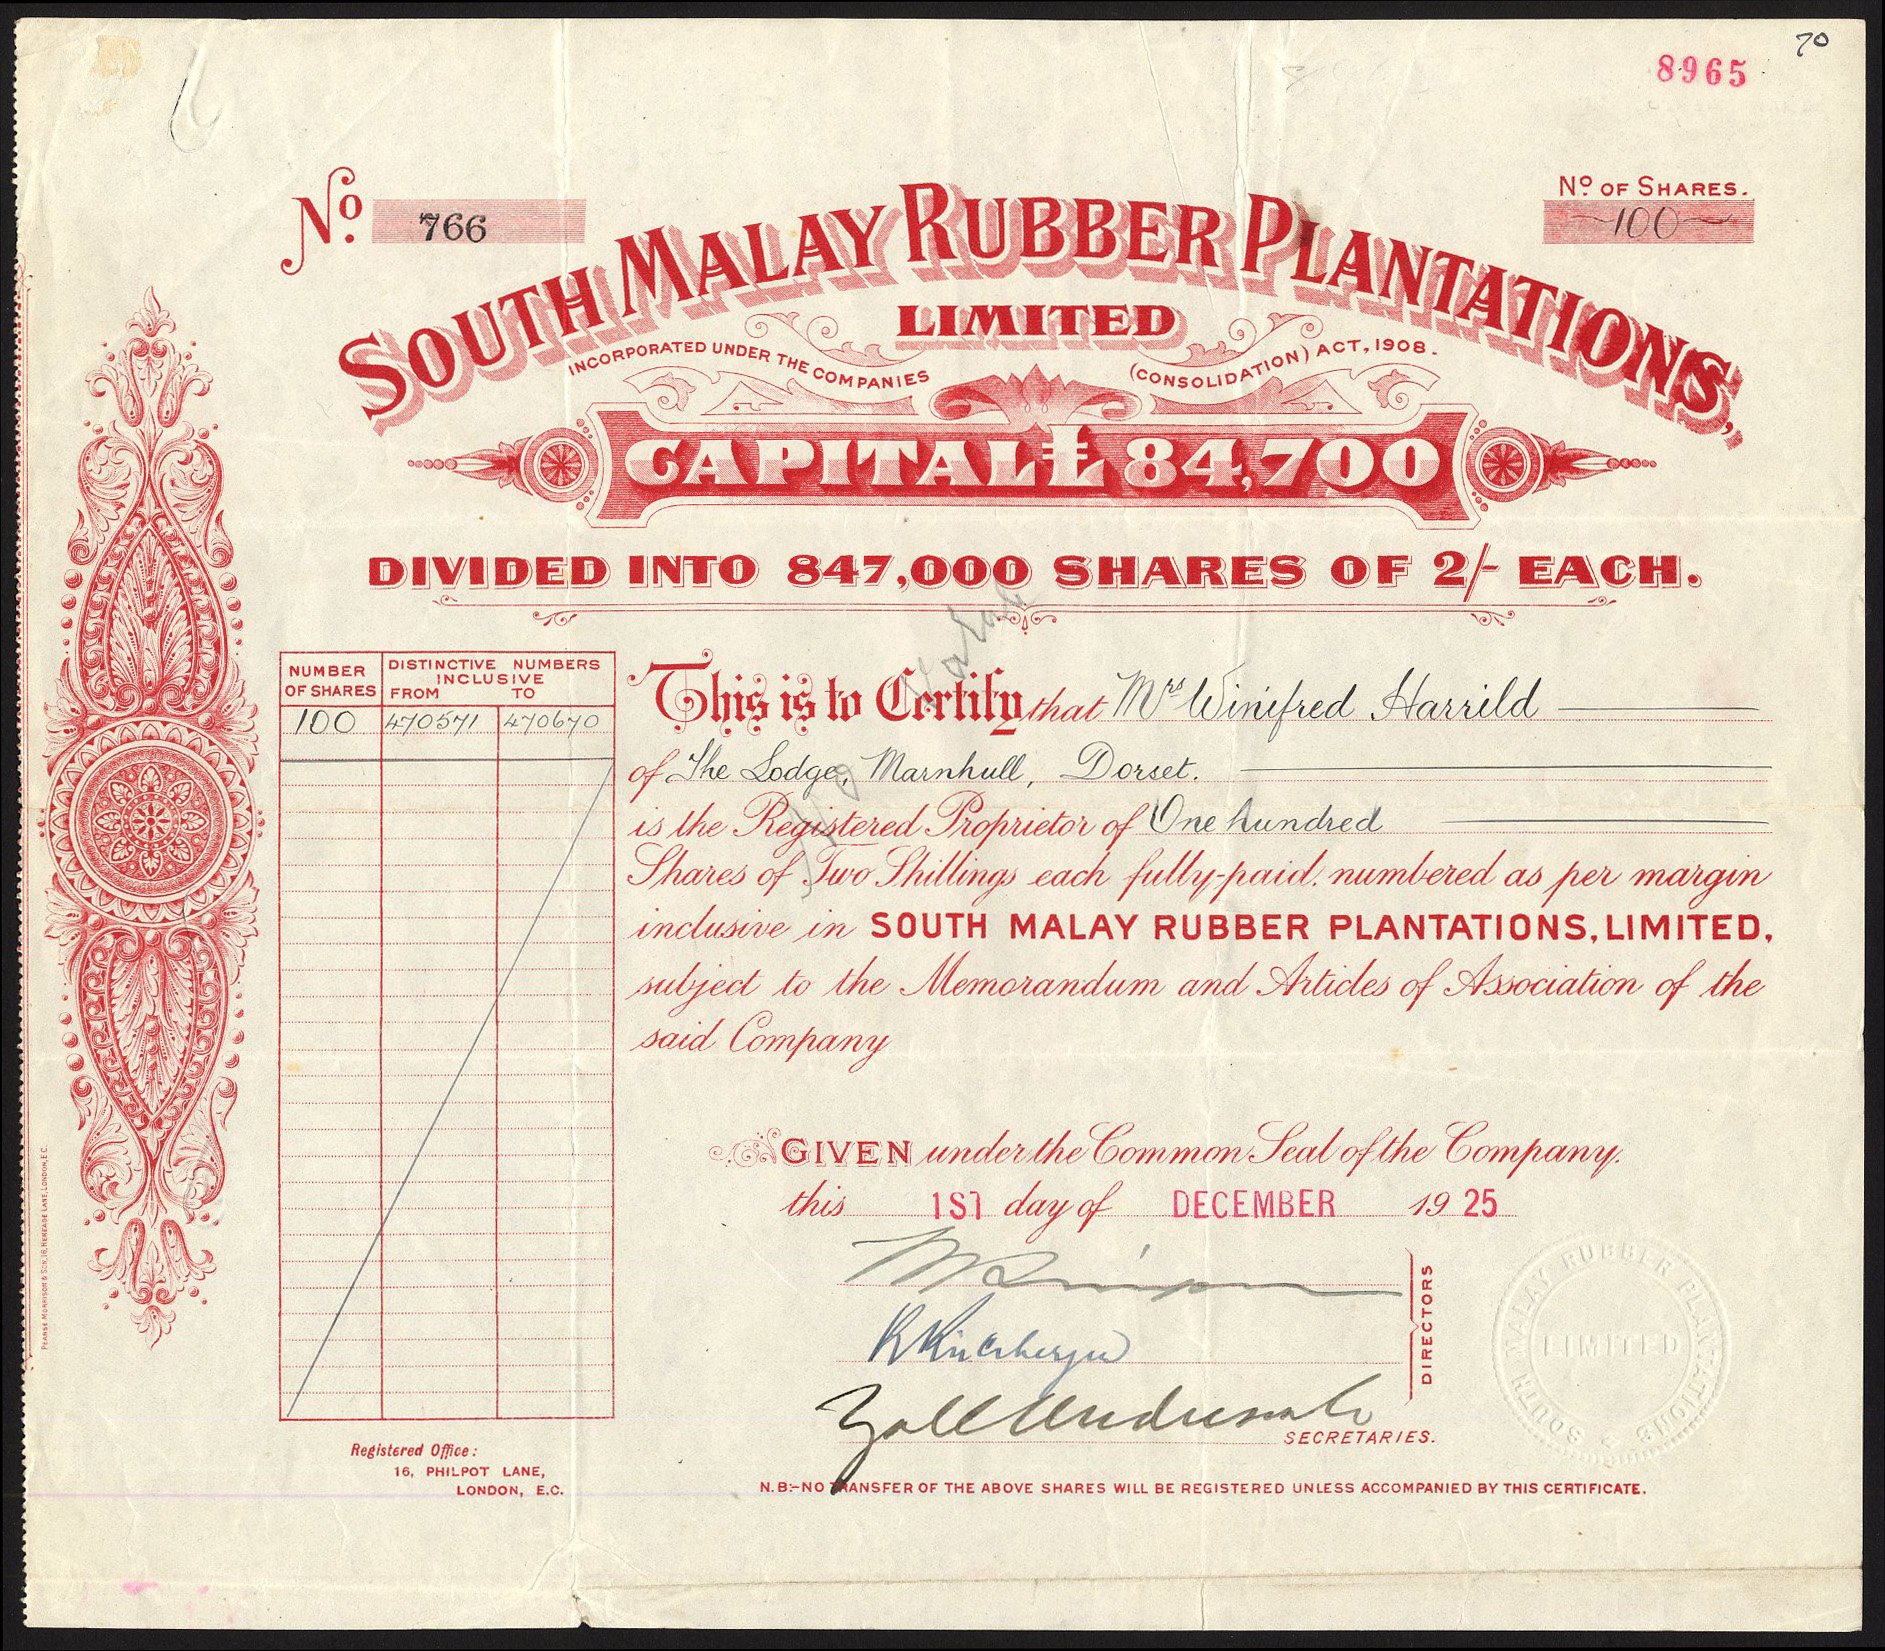 70
8965
Nº OF SHARES.
100
Nº. 766
SOUTH MALAY RUBBER PLANTATIONS,
LIMITED
INCORPORATED UNDER THE COMPANIES (CONSOLIDATION) ACT, 1908.
CAPITAL £84,700
DIVIDED INTO 847,000 SHARES OF 2/- EACH.
NUMBER OF SHARES
DISTINCTIVE NUMBERS
INCLUSIVE
FROM TO
100 470571 470670
This is to Certify that Mrs Winifred Harrild
of The Lodge, Marnhull, Dorset.
is the Registered Proprietor of One hundred
Shares of Two Shillings each fully-paid. numbered as per margin
inclusive in SOUTH MALAY RUBBER PLANTATIONS, LIMITED,
subject to the Memorandum and Articles of Association of the
said Company
No Value
GIVEN under the Common Seal of the Company.
this 1ST day of DECEMBER 1925
DIRECTORS
SECRETARIES.
SOUTH MALAY RUBBER PLANTATIONS
LIMITED
Registered Office:
16, PHILPOT LANE,
LONDON, E.C.
N.B:-NO TRANSFER OF THE ABOVE SHARES WILL BE REGISTERED UNLESS ACCOMPANIED BY THIS CERTIFICATE.
PEARSE MORRISON & SON, 16, HENEAGE LANE, LONDON, E.C.